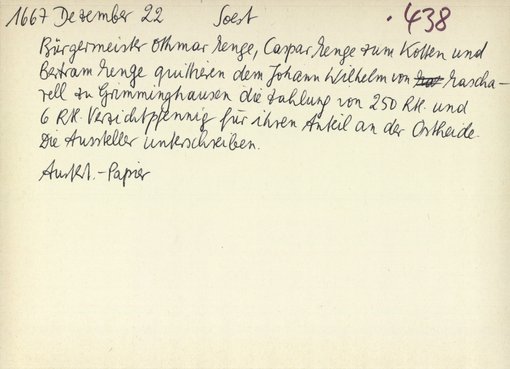 1667 Dezember 22 Soest · 438
Bürgermeister Othmar Menge, Caspar Menge zum Kotten und
Bertram Menge quittieren dem Johann Wilhelm von Mascha-
rell zu Grimminghausen die Zahlung von 250 Rtl. und
6 Rtl. Verzichtpfennig für ihren Anteil an der Ostheide.
Die Aussteller unterschreiben.
Ausf. - Papier